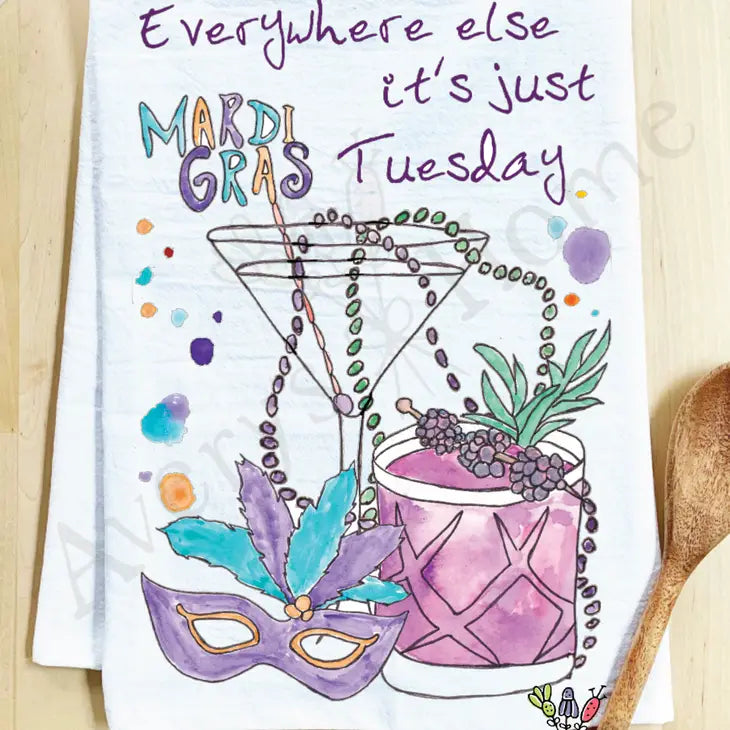 Everywhere else
it's just
Tuesday
MARDI
GRAS
Averys Home